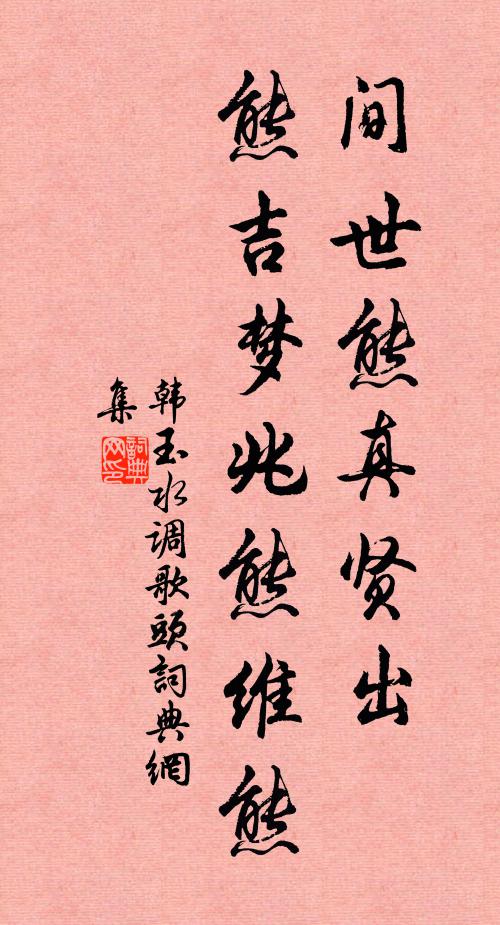 间世熊真贤出
熊吉梦兆熊维熊
韩玉水调歌頭詞典網
集
詞典
网印